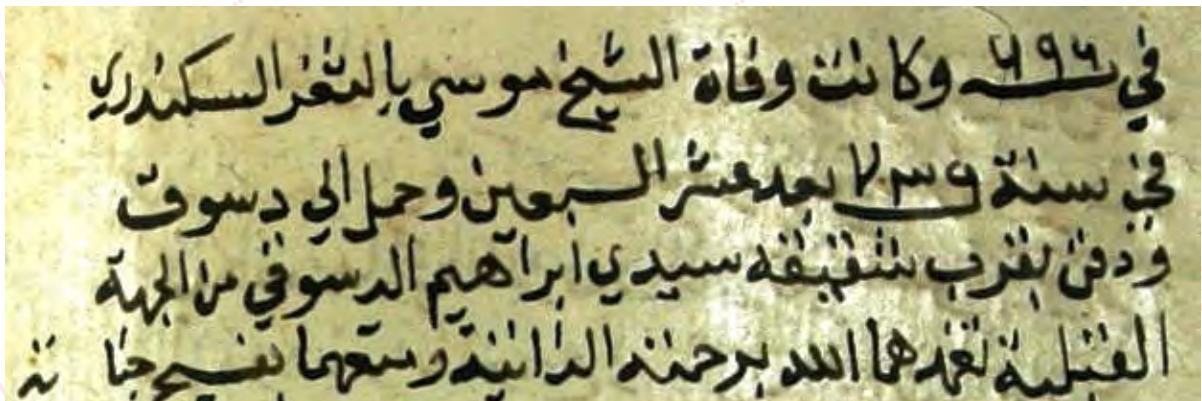 في سنة ٦٩٦ وكانت وفاة الشيخ موسي بالثغر السكندري
في سنة ٧٣٩ بعد عشر السبعين وحمل الي دسوق
ودفن بقرب شقيقه سيدي ابراهيم الدسوقي من الجهة
القبلية تغمدهما الله برحمته الدانية ومتعهما بفسيح جنا ته